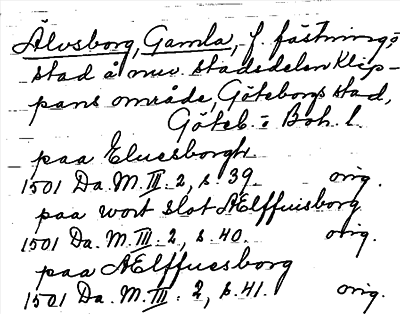 Älvsborg, Gamla, f. fästnings-
stad å nuv. stadsdelen Klip-
pans område, Göteborgs stad,
Göteb. o Boh. l.
paa Eluesborgh
1501 Da. M. III. 2, s. 39. orig.
paa wort slot AElffuisborg
1501 Da. M. III. 2, s. 40. orig.
paa AElffuesborg
1501 Da. M. III. 2, s. 41. orig.